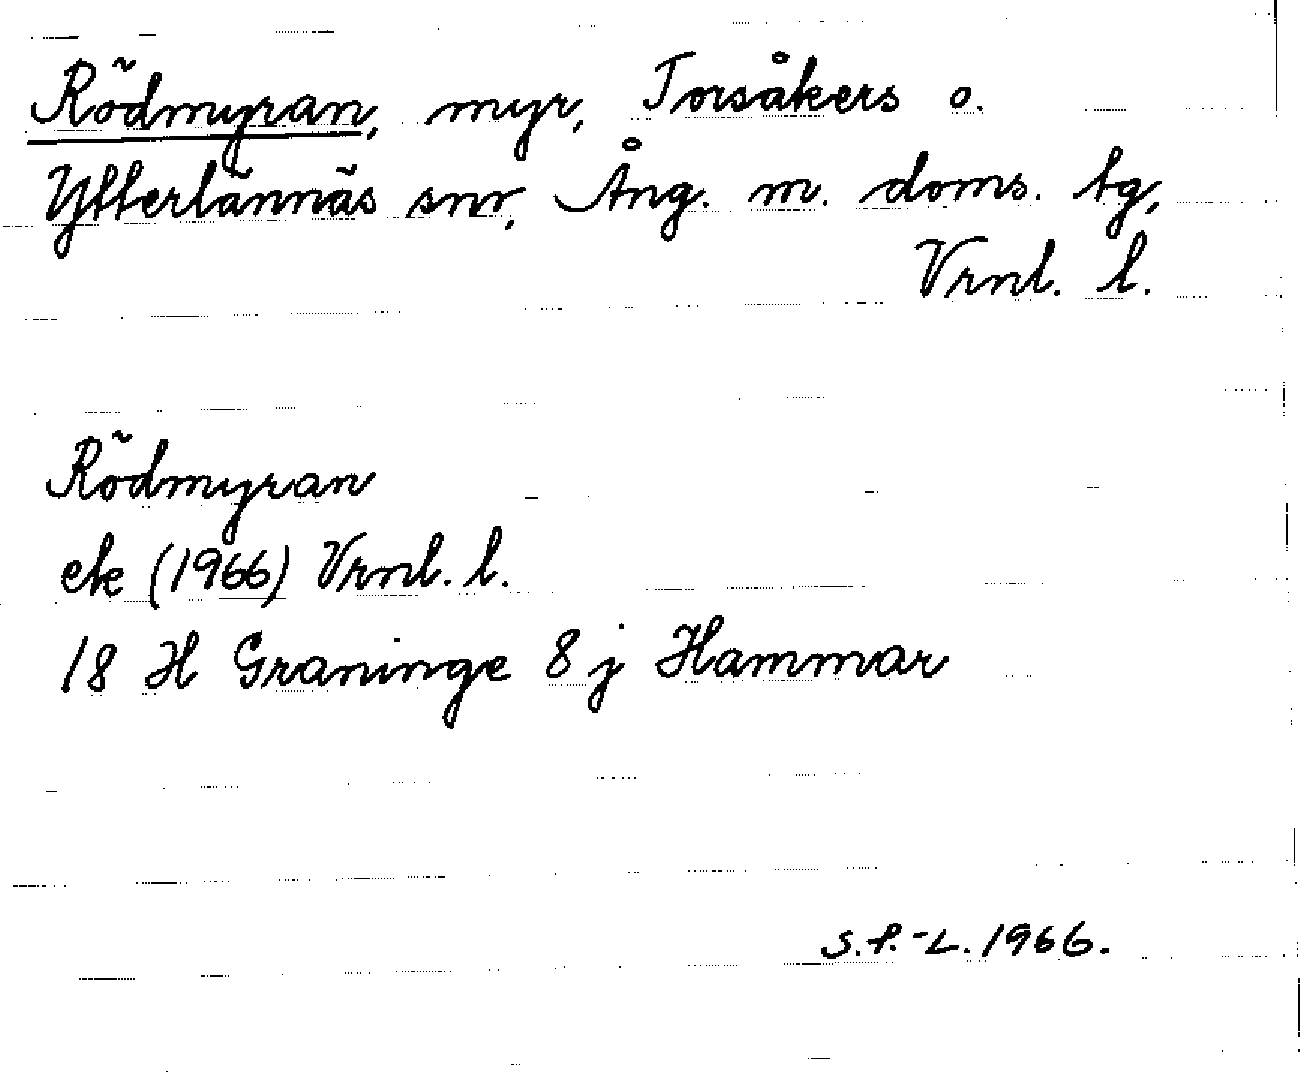 Rödmyran, myr, Torsåkers o.
Ytterlännäs snr, Ång. m. doms. tg,
Vrnl. l.
Rödmyran
ek (1966) Vrnl. l.
18 H Graninge 8 j Hammar
S.P.-L. 1966.